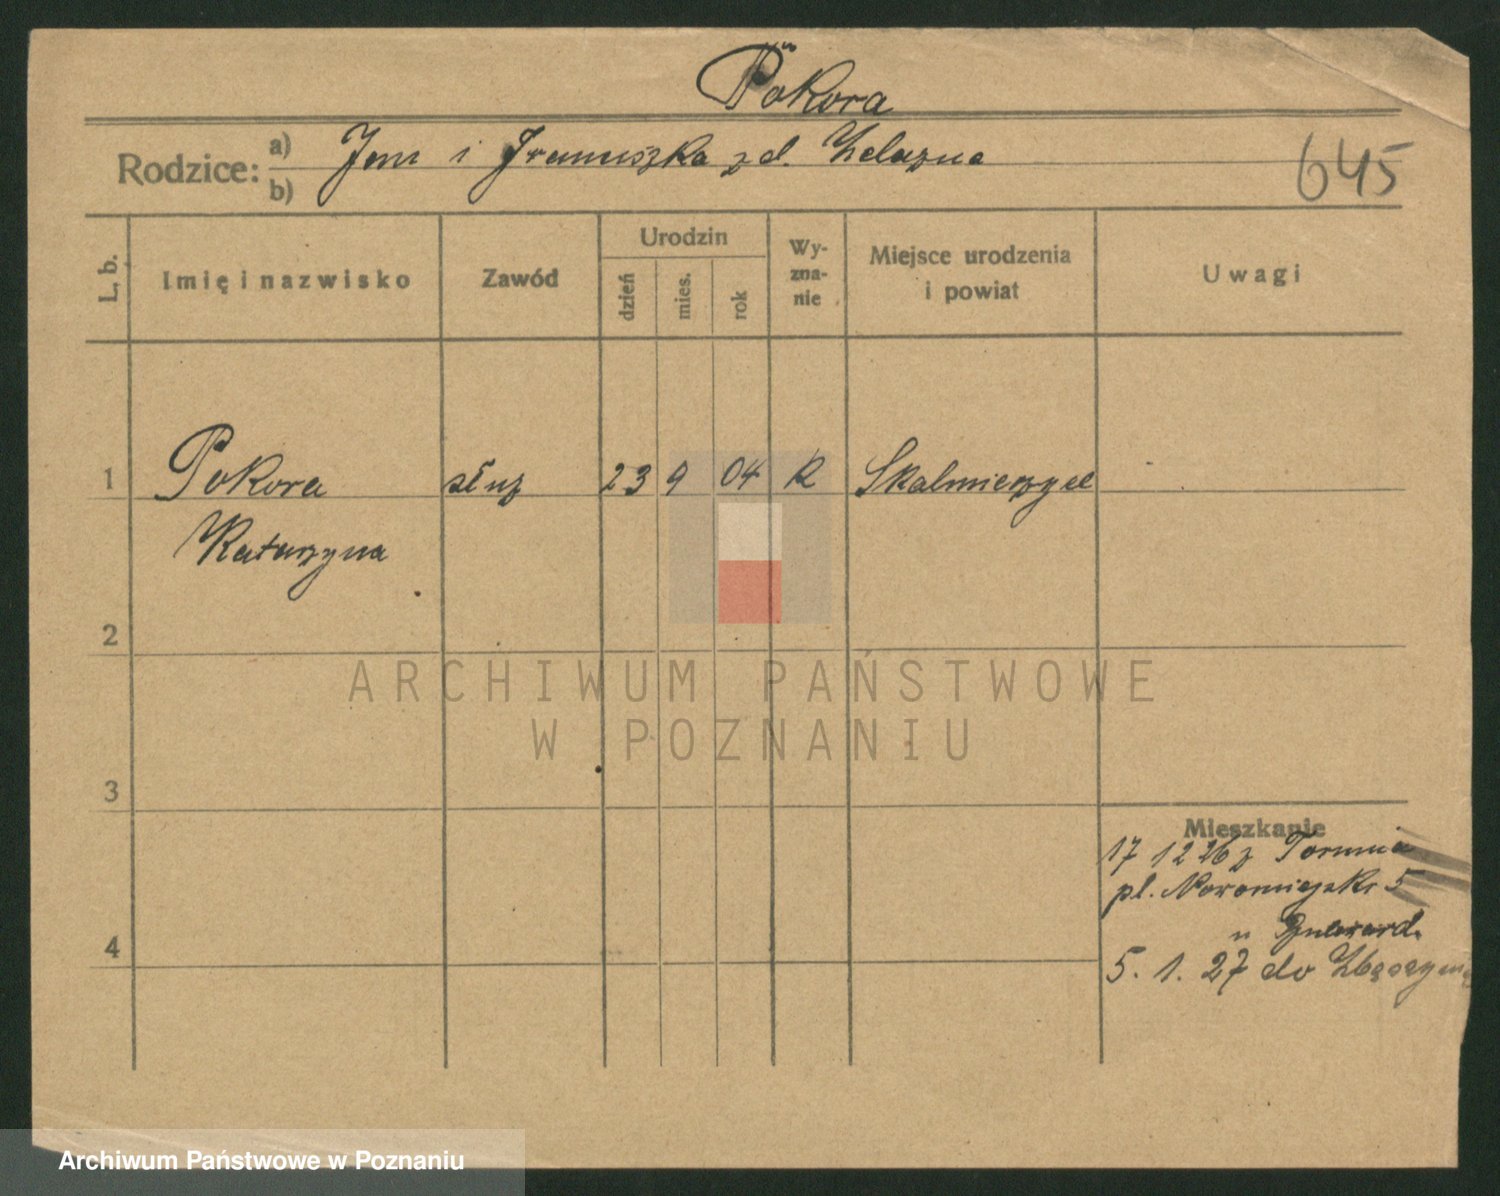 Pokora
Rodzice: a) Jan i Franciszka zd. Żelazna
b)
645
L. b.
Imię i nazwisko
Zawód
Urodzin
dzień
mies.
rok
Wy-
zna-
nie
Miejsce urodzenia
i powiat
Uwagi
1 Pokora służ 23 9 04 k Skalmierzyce
Katarzyna
2
3
4
Mieszkanie
17 12 26 z Torunia
pl. Nowomiejski 5
u
5. 1. 27 do Zbąszynia
ARCHIWUM PAŃSTWOWE
W POZNANIU
Archiwum Państwowe w Poznaniu